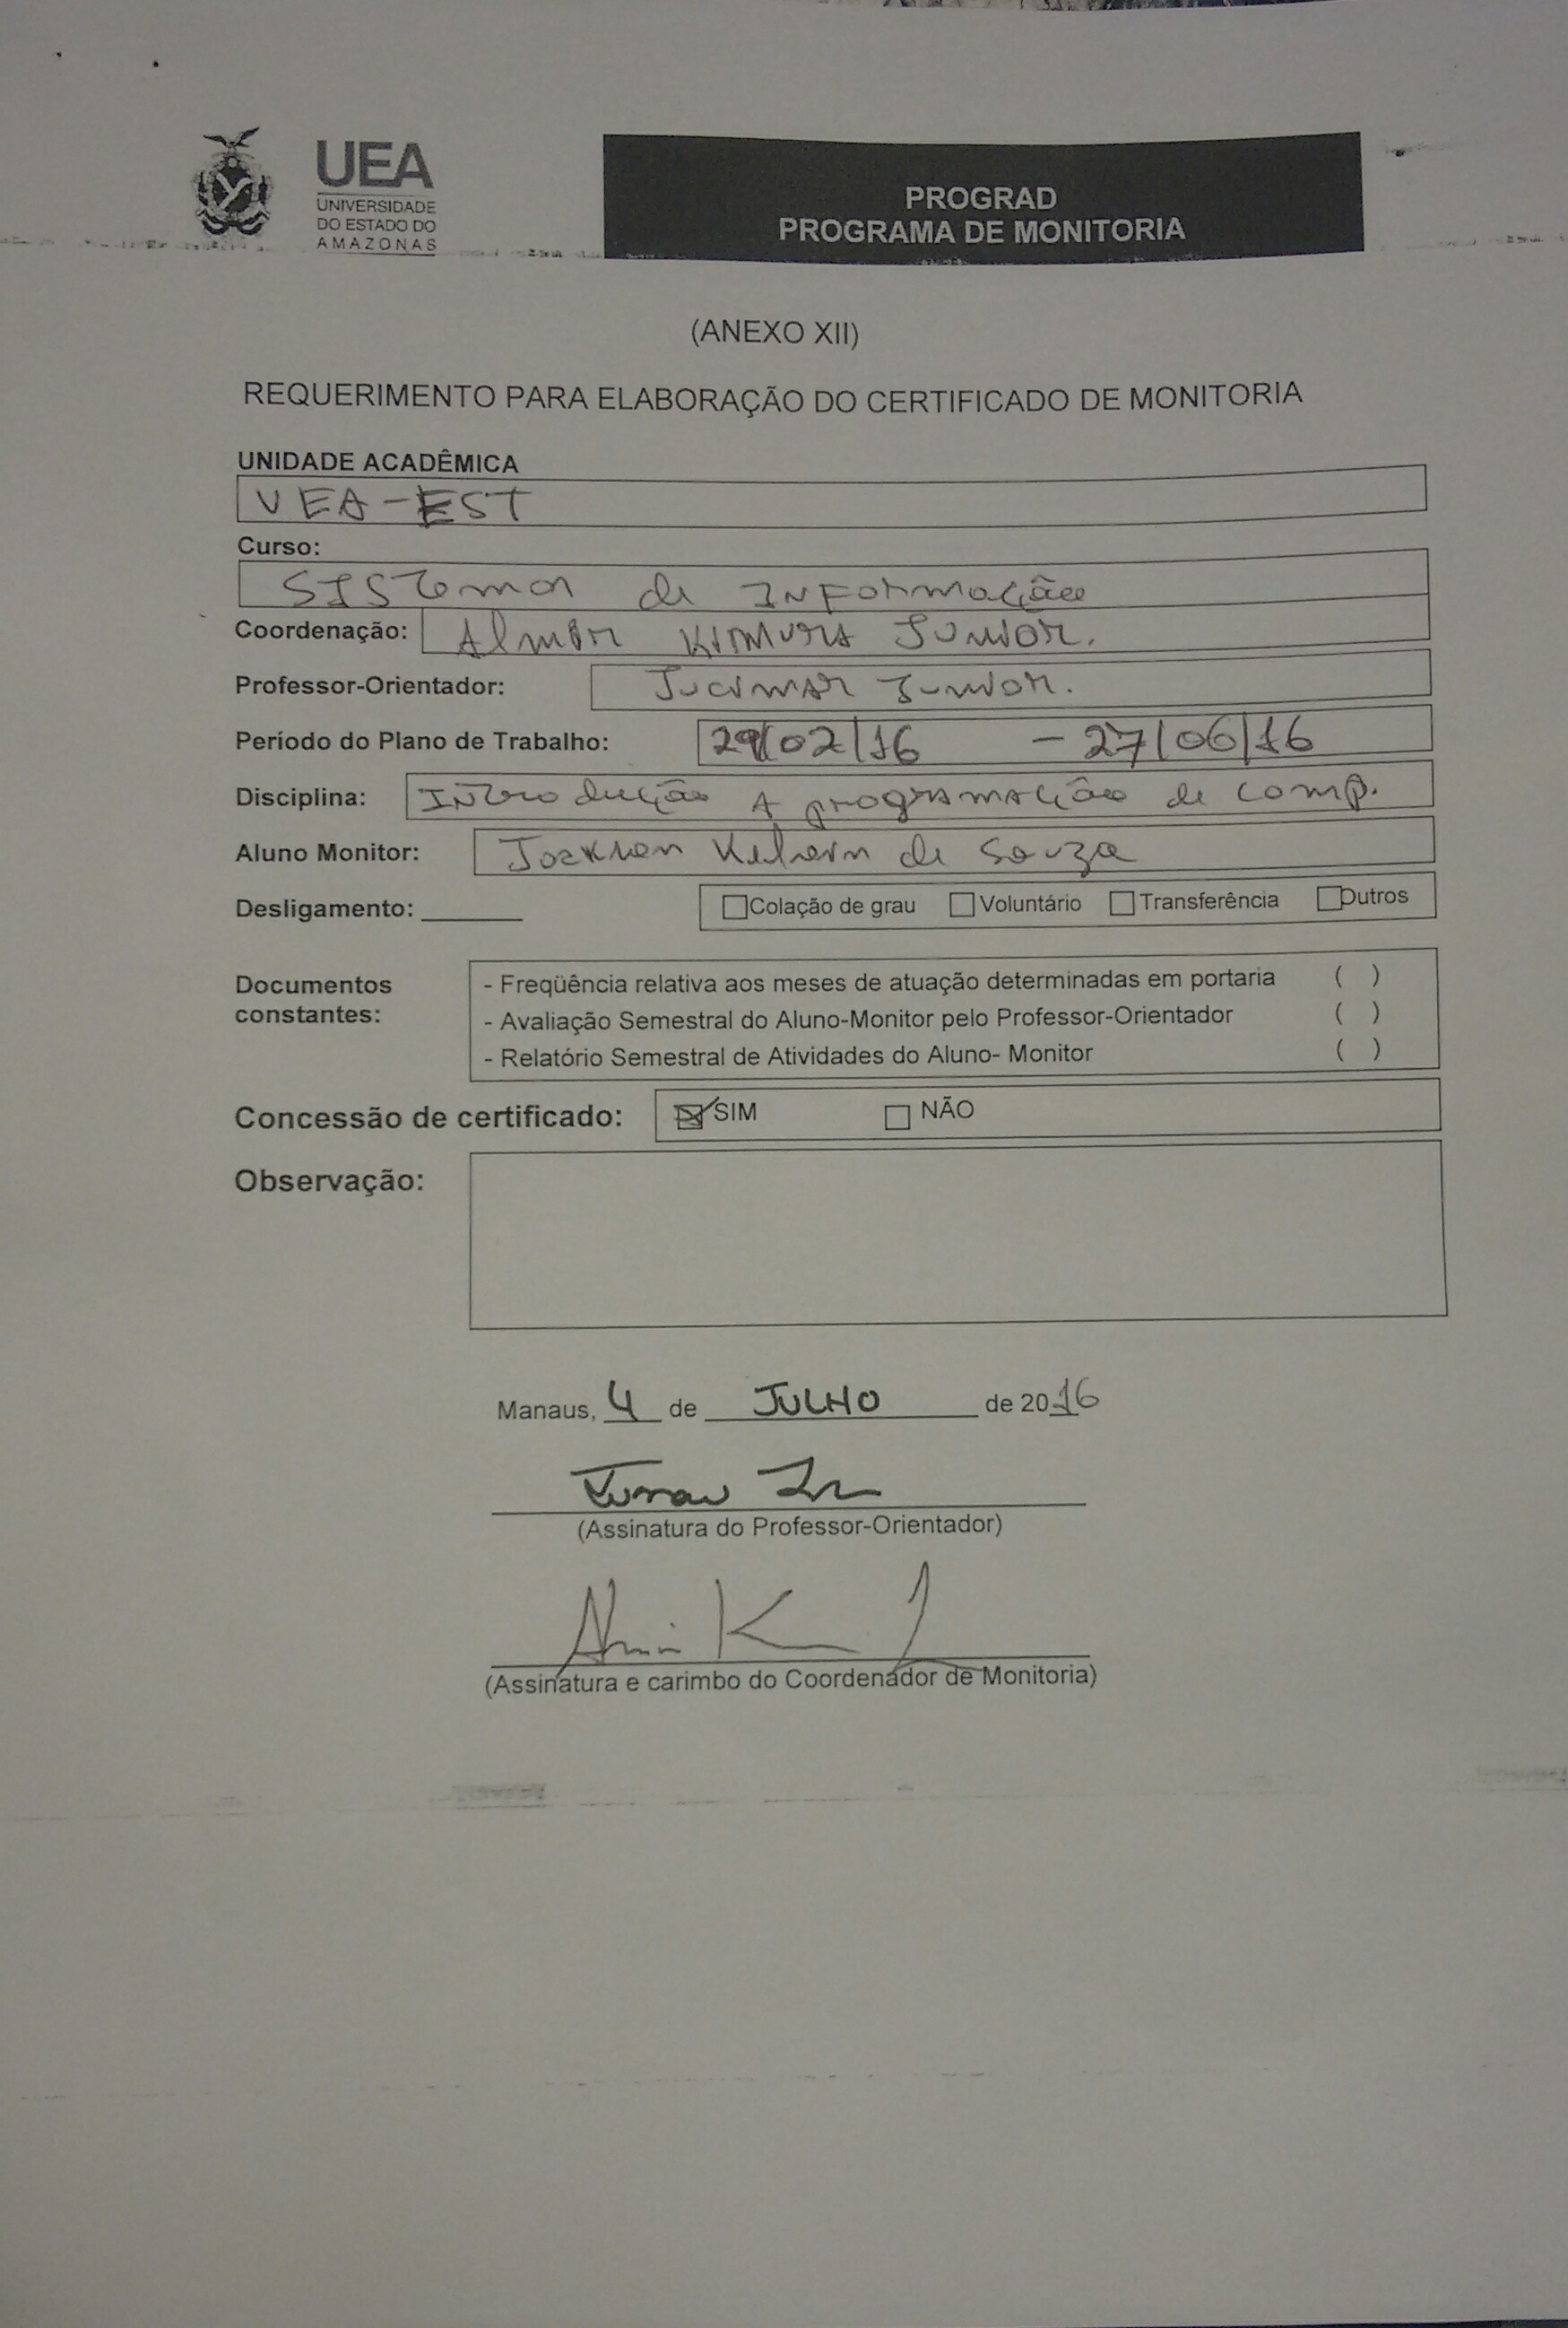 UEA
UNIVERSIDADE
DO ESTADO DO
AMAZONAS
PROGRAD
PROGRAMA DE MONITORIA
(ANEXO XII)
REQUERIMENTO PARA ELABORAÇÃO DO CERTIFICADO DE MONITORIA
UNIDADE ACADÊMICA
UEA-EST
Curso:
SISTemas de INFormação
Coordenação: Almir KIMURA JUNIOR.
Professor-Orientador: JUCIMAR JUNIOR.
Período do Plano de Trabalho: 29/02/16 - 27/06/16
Disciplina: INTrodução A programação de comp.
Aluno Monitor: de Souza
Desligamento: ______ Colação de grau Voluntário Transferência Outros
Documentos constantes:
- Freqüência relativa aos meses de atuação determinadas em portaria ( )
- Avaliação Semestral do Aluno-Monitor pelo Professor-Orientador ( )
- Relatório Semestral de Atividades do Aluno- Monitor ( )
Concessão de certificado: SIM NÃO
Observação:
Manaus, 4 de JULHO de 2016
(Assinatura do Professor-Orientador)
(Assinatura e carimbo do Coordenador de Monitoria)